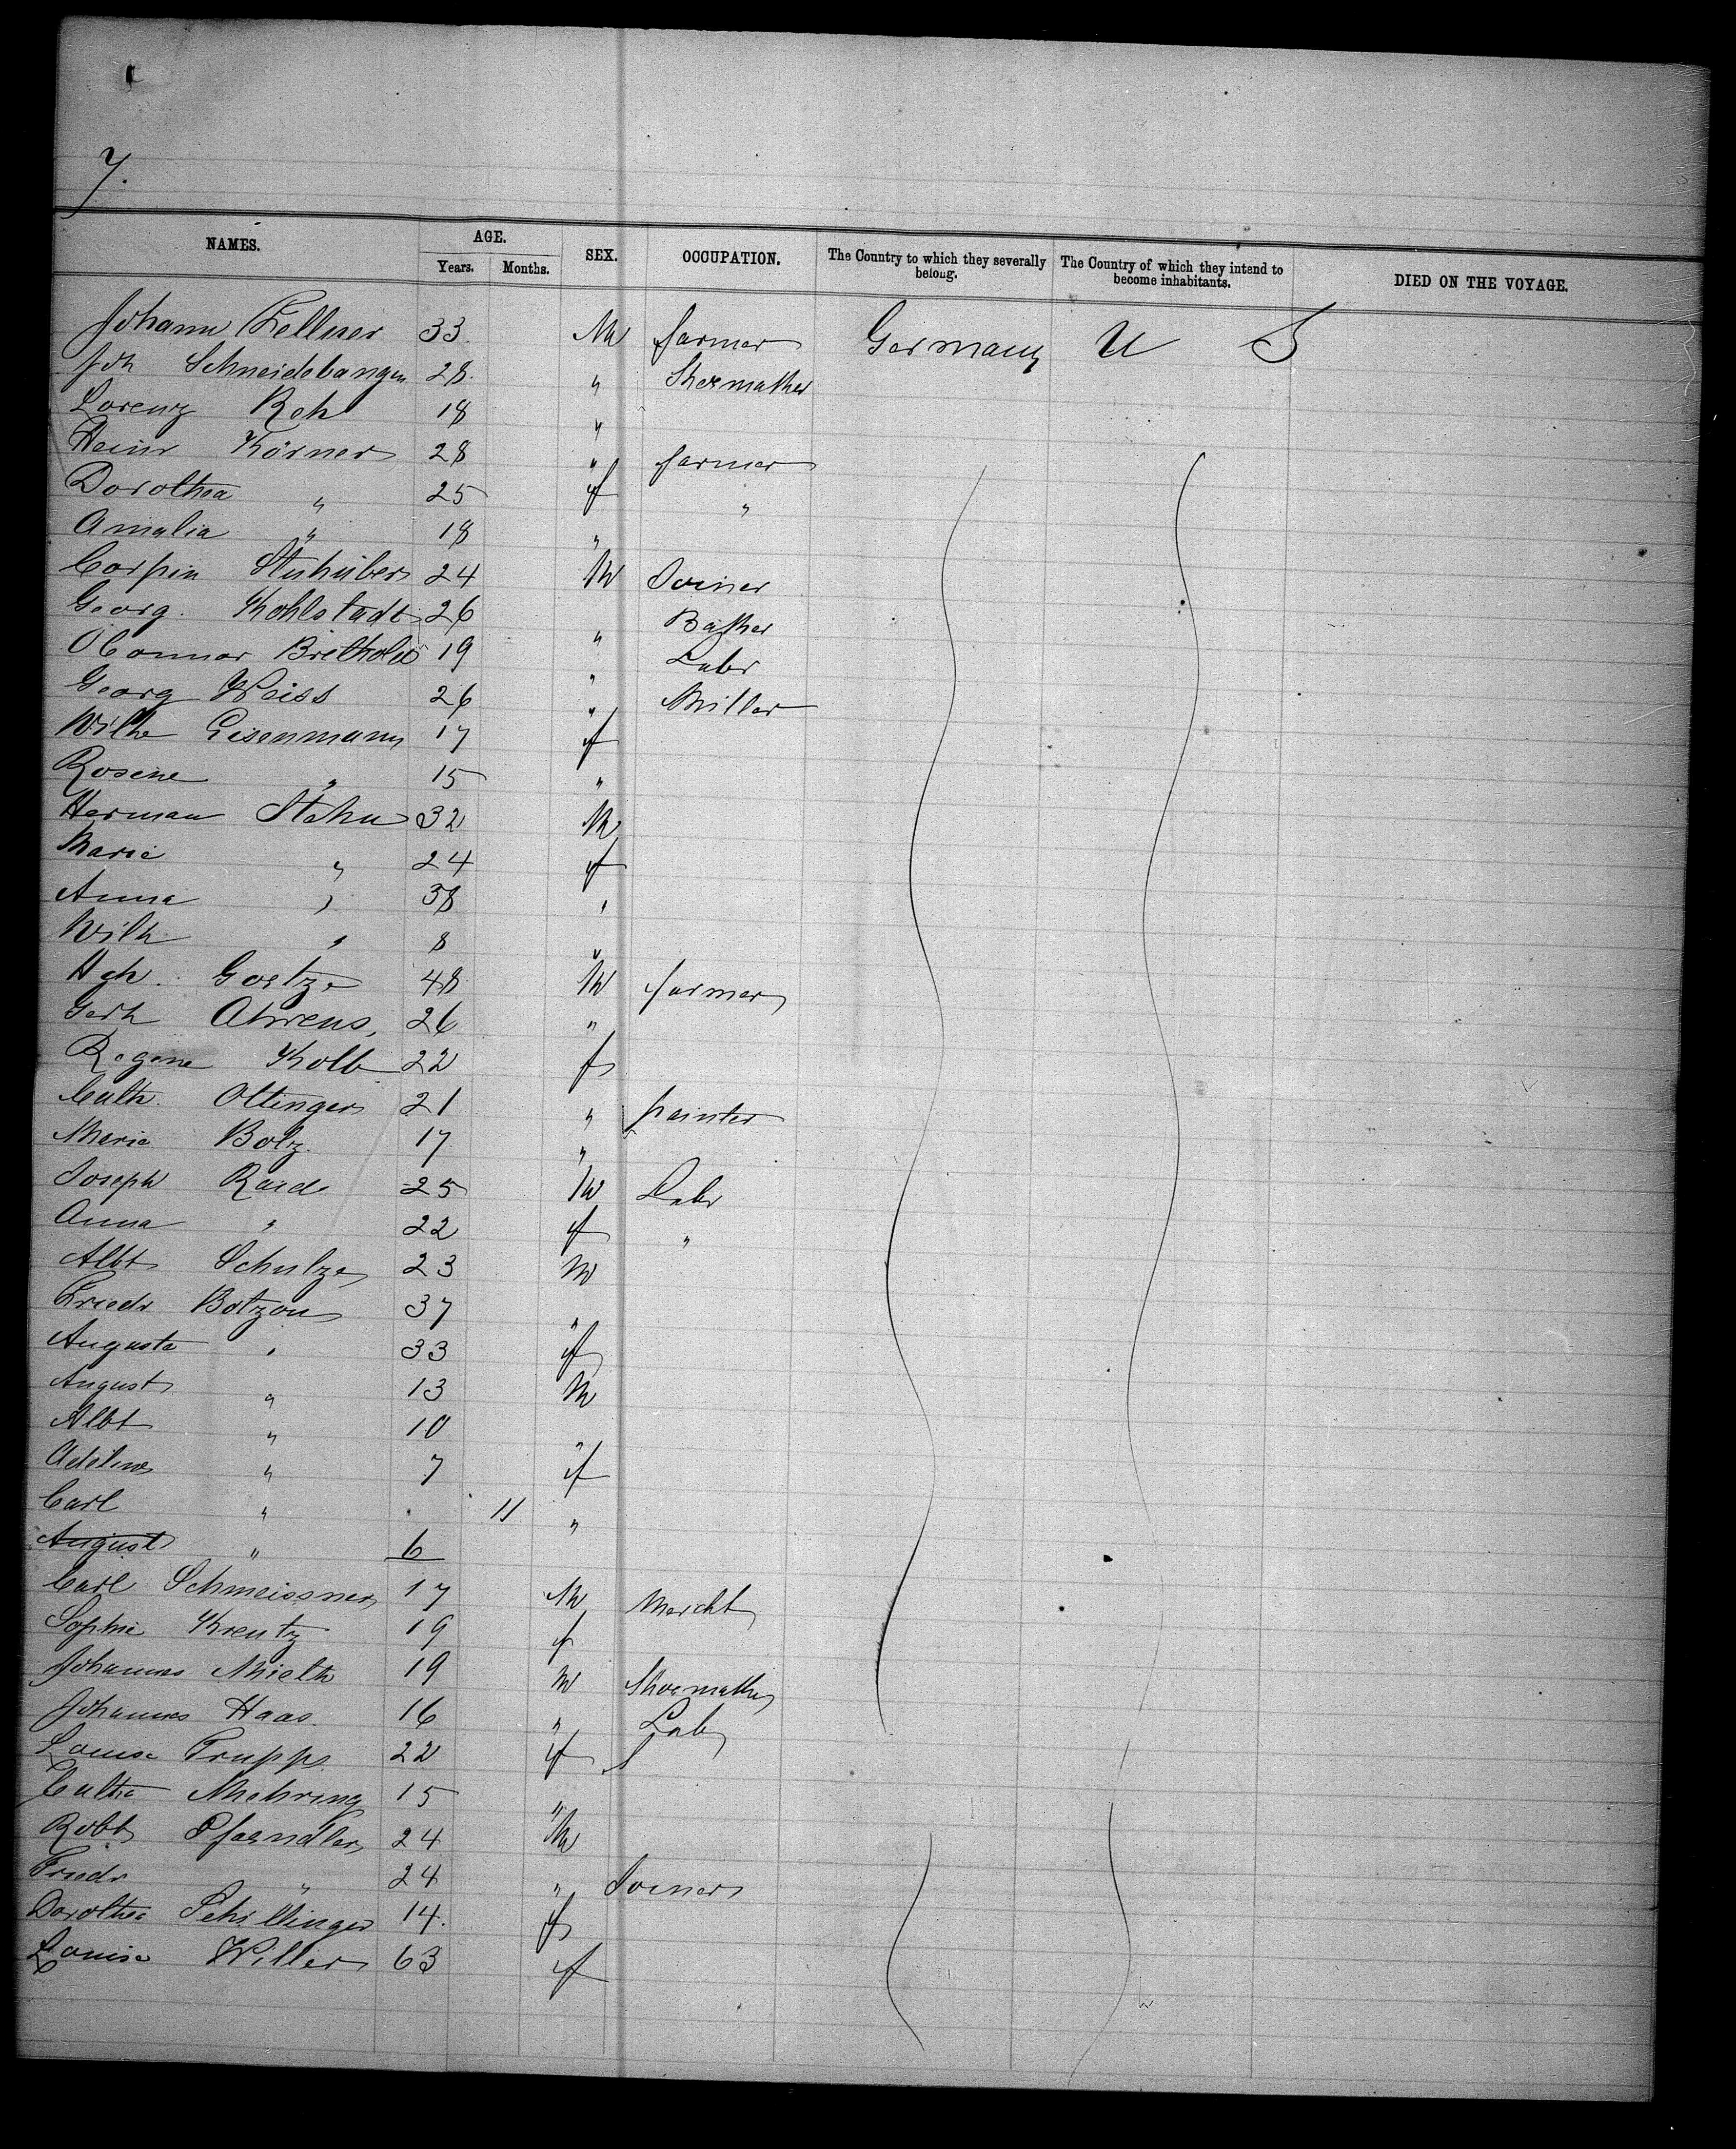 7.
NAMES. AGE. SEX. OCCUPATION. The Country to which they severally belong. The Country of which they intend to become inhabitants. DIED ON THE VOYAGE.
Years. Months.
Johann Kellner 33. M farmer Germany U S
Joh Schneidebangen 28. " Shoemaker
Lorenz Roh 18 "
Heinr Körner 28 " farmer
Dorothea " 25 f "
Amalia " 18 "
Stuhuber 24 M Joiner
Georg. Kohlstadt 26 " Baker
Brethold 19 " Labr
Georg Weiss 26 " Miller
Wilhe Eisenmann 17 f
Rosine " 15 "
Herman Stehn 32 M
Marie " 24 f
Anna " 38 "
Wilh " 8 "
Hch. Goetze 48 M farmer
Gerh Ahrens, 26 "
Regene Kolb 22 f
Cath. Ottinger 21 " painter
Marie Bolz. 17 "
Joseph Raid 25 M Labr
Anna " 22 f "
Albt Schulze 23 M
Friedr Botzon 37 "
Auguste " 33 f
August " 13 M
Albt " 10 "
Adeline " 7 f
Carl " 11 "
August " 6
Carl Schmeissner 17 M Mercht
Sophie Kreutz 19 f
Johannes Mieth 19 M Shoemaker
Johannes Haas. 16 " Lab
Louise Trupp 22 f
Cathe Mehring 15 "
Robt Pfaendler 24 M
Friedr " 24 " Joiner
Dorothea Schillinger 14. f
Louise Willer 63 f